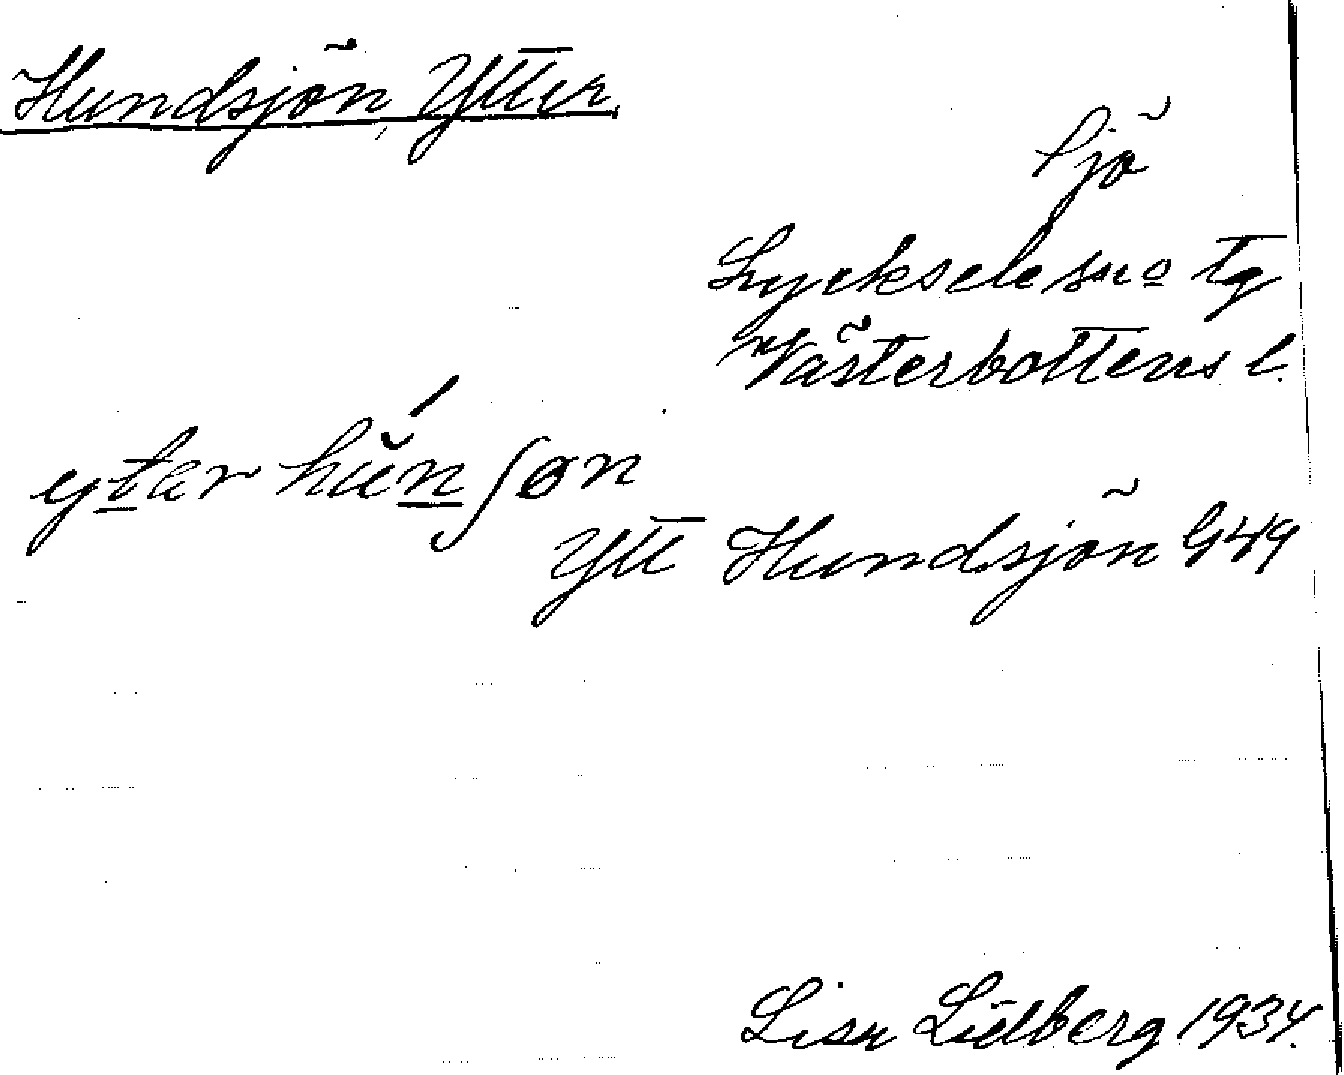 Hundsjön, Ytter
Sjö
Lycksele sn o tg
Västerbottens l.
yt̲er hŭ́n̲ʃøn
Ytt Hundsjön G49
Lisa Lidberg 1934.